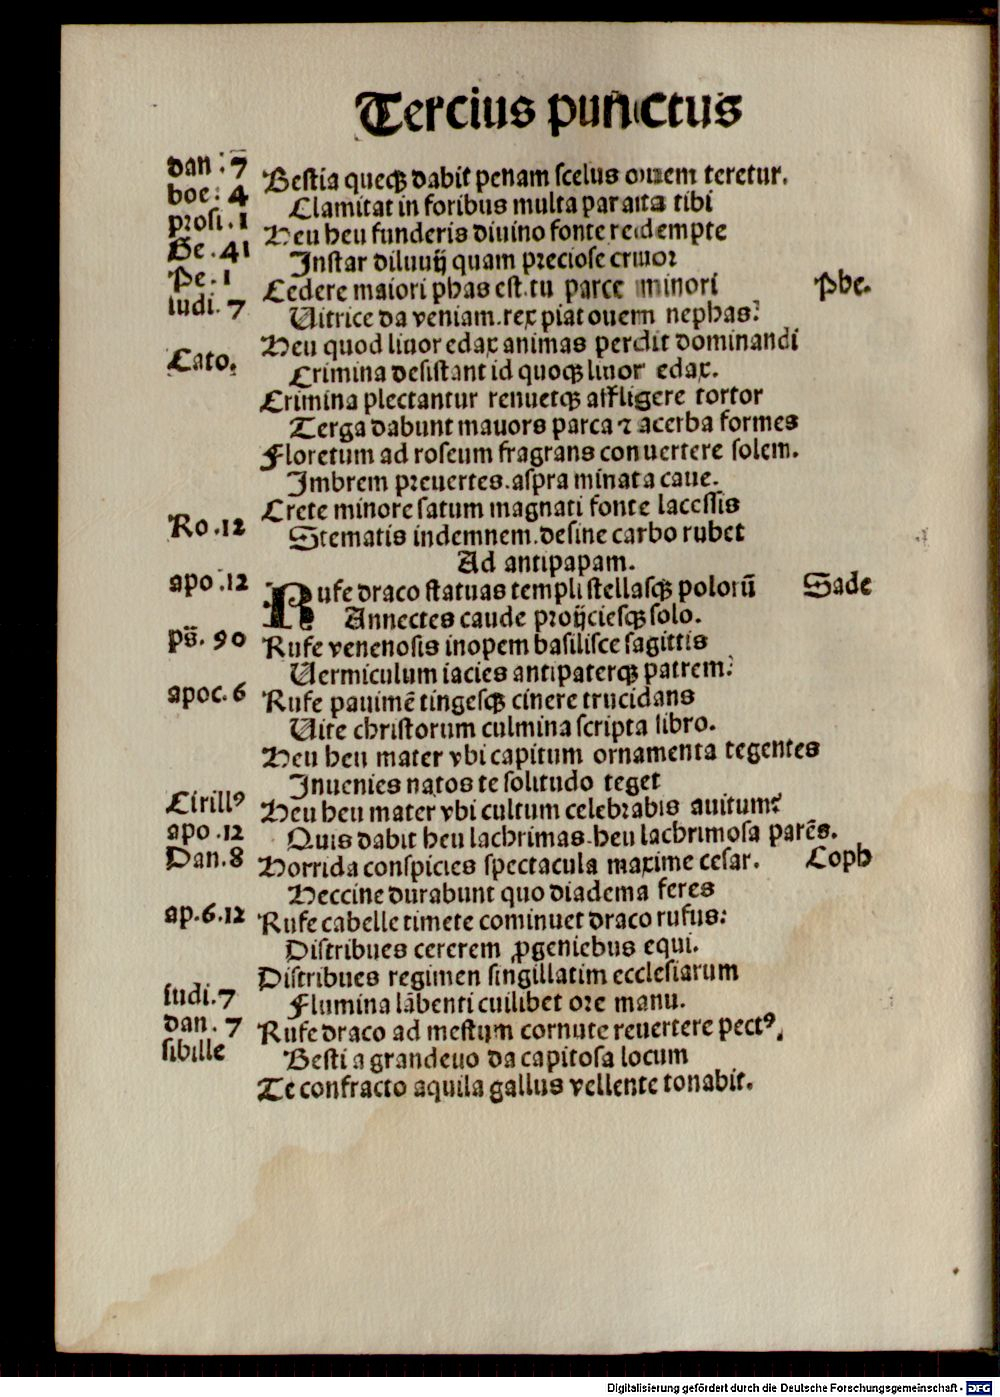 Tercius punctus
dan .7
Bestia queqꝫ dabit penam scelus ouem teretur.
boe: 4
Clamitat in foribus multa parata tibi
prosi .1
Heu heu funderis diuino fonte redempte
Ge .41
Instar diluuij quam preciose cruor
Pe .1
Cedere maiori phas est. tu parce minori
Phe.
iudi. 7
Uitrice da veniam. rex piat ouem nephas:
Heu quod liuor edax animas perdit dominandi
Cato.
Crimina desistant id quoqꝫ liuor edax.
Crimina plectantur renuetqꝫ affligere tortor
Terga dabunt mauors parca ⁊ acerba formes
Floretum ad roseum fragrans conuertere solem.
Imbrem preuertes. aspra minata caue.
Crete minore satum magnati fonte lacessis
Ro .12
Stematis indemnem. desine carbo rubet
Ad antipapam.
apo .12
Rufe draco statuas templi stellasqꝫ polorū
Sade
Annectes caude proijciesqꝫ solo.
ps̄. 90
Rufe venenosis inopem basilisce sagittis
Uermiculum iacies antipaterqꝫ patrem:
apoc. 6
Rufe pauimē tingesqꝫ cinere trucidans
Uite christorum culmina scripta libro.
Heu heu mater vbi capitum ornamenta tegentes
Inuenies natos te solitudo teget
Cirillꝰ
Heu heu mater vbi cultum celebrabis auitum:
apo .12
Quis dabit heu lachrimas. heu lachrimosa parēs.
Dan. 8
Horrida conspicies spectacula maxime cesar.
Coph
Heccine durabunt quo diadema feres
ap. 6. 12
Rufe cabelle timete cominuet draco rufus:
Distribues cererem ꝓgeniebus equi.
Distribues regimen singillatim ecclesiarum
iudi. 7
Flumina lābenti cuilibet ore manu.
dan. 7
Rufe draco ad mestum cornute reuertere pectꝰ.
sibille
Bestia grandeuo da capitosa locum
Te confracto aquila gallus vellente tonabit.
Digitalisierung gefördert durch die Deutsche Forschungsgemeinschaft - DFG